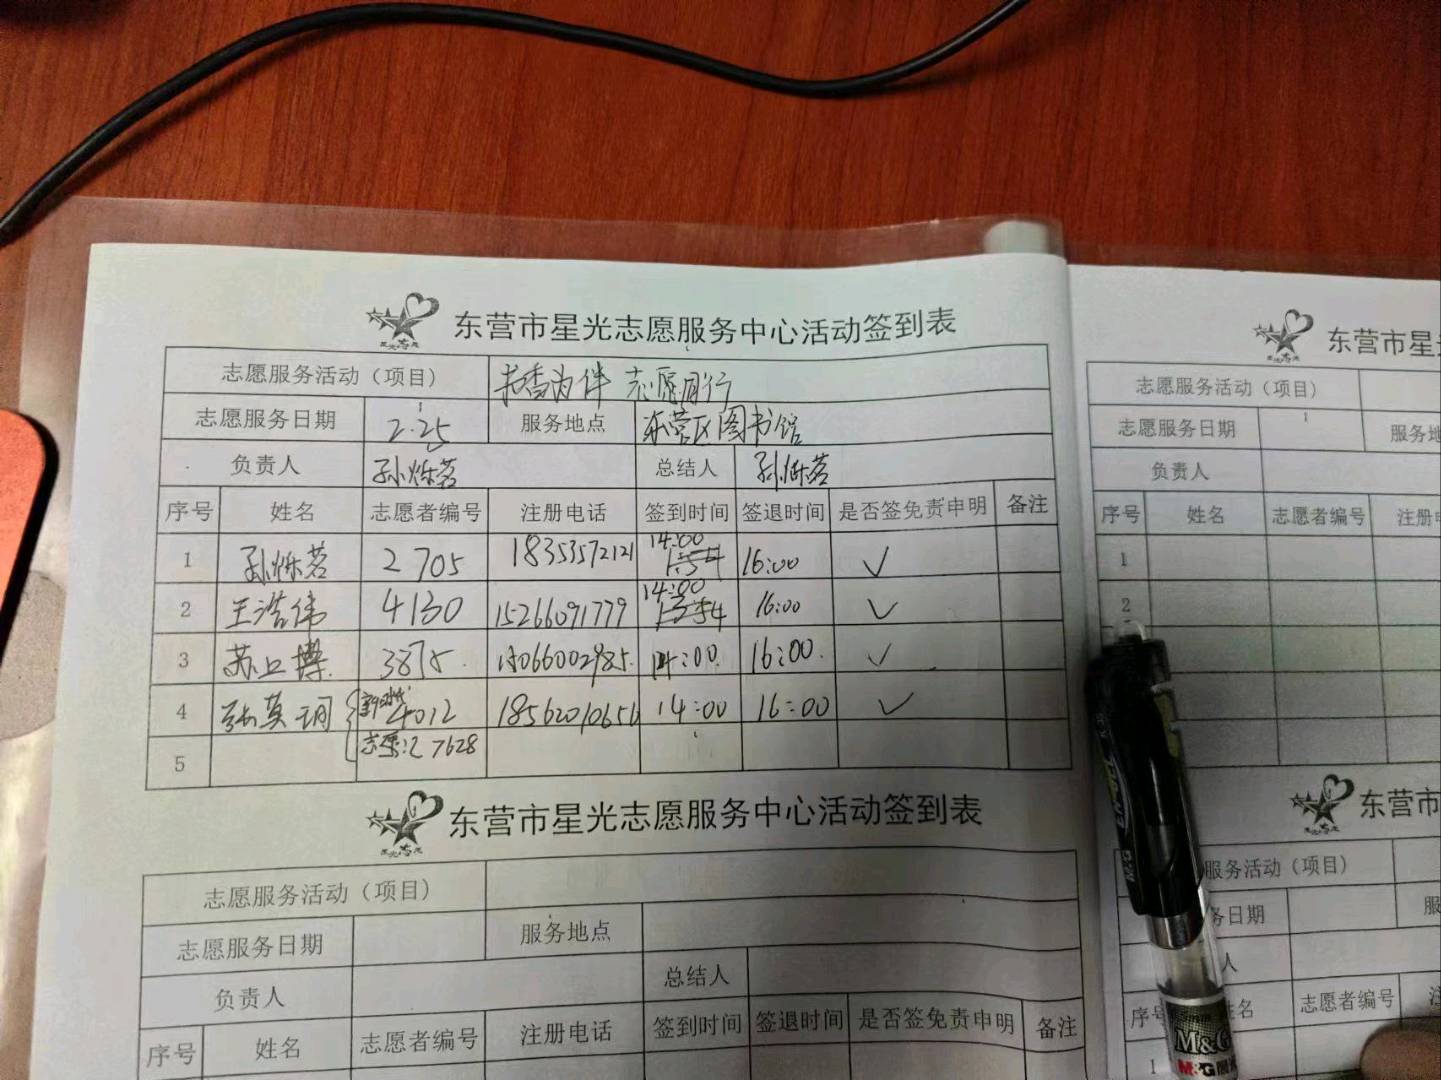 东营市星光志愿服务中心活动签到表
志愿服务活动（项目） 书香为伴 志愿同行
志愿服务日期 2.25 服务地点 东营区图书馆
负责人 孙烁茗 总结人 孙烁茗
序号 姓名 志愿者编号 注册电话 签到时间 签退时间 是否签免责申明 备注
1 孙烁茗 2705 18353572121 14:00 16:00 ✓
2 王浩伟 4130 15266091779 14:00 16:00 ✓
3 苏 博 3875 15066002985 14:00 16:00 ✓
4 张英 4012 18562010656 14:00 16:00 ✓
5 志愿汇 7628
东营市星光志愿服务中心活动签到表
志愿服务活动（项目）
志愿服务日期 服务地点
负责人 总结人
序号 姓名 志愿者编号 注册电话 签到时间 签退时间 是否签免责申明 备注
东营市星
志愿服务活动（项目）
志愿服务日期 服务地
负责人
序号 姓名 志愿者编号 注册
1
2
东营市
服务活动（项目）
务日期 服
人
序号 姓名 志愿者编号 注
1
M&G
M&G